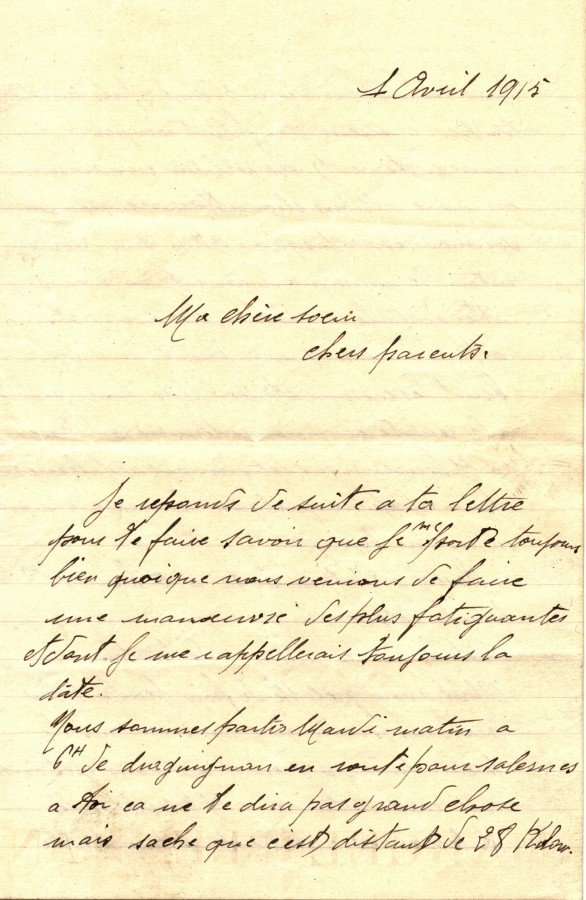 1 Avril 1915
Ma chère soeur
chers parents.
Je reponds de suite a ta lettre
pour te faire savoir que Je me porte toujours
bien quoique nous venions de faire
une manoeuvre des plus fatiguantes
et dont Je me rappellerais toujours la
date.
Nous sommes partis Mardi matin a
6H de draguignan en route pour salernes
a toi ca ne te dira pas grand chose
mais sache que c'est distant de 28 Kilom.